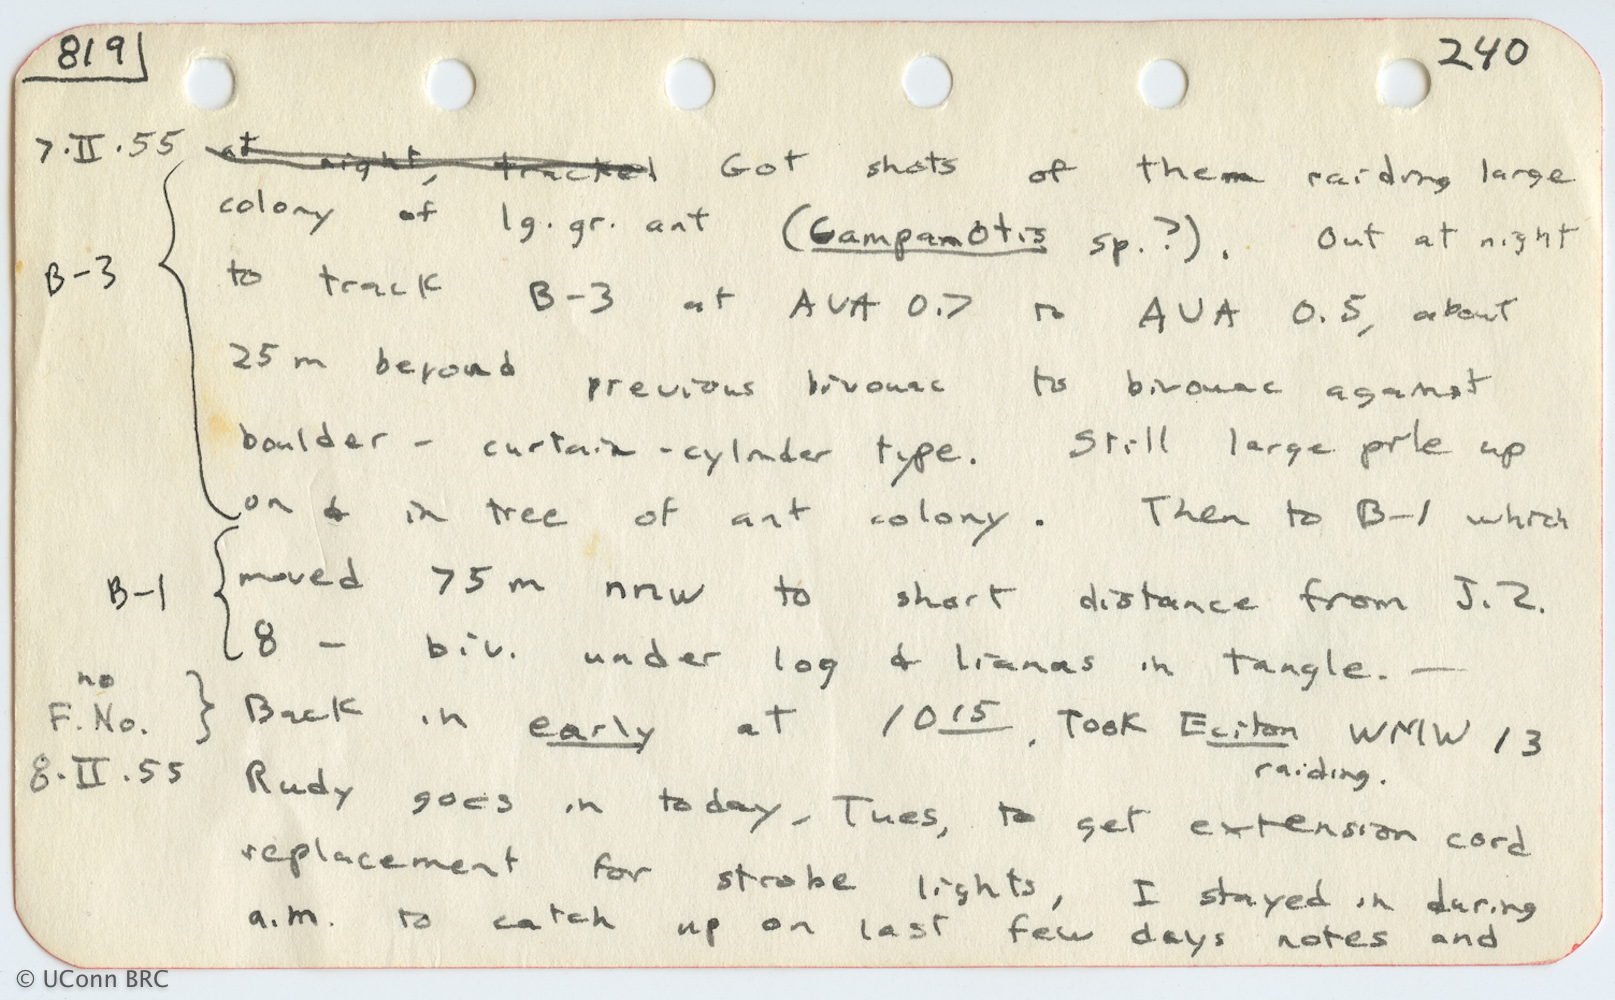 819
240
7.II.55 at night, tracked Got shots of them raiding large
colony of lg. gr. ant (Campanotis sp.?). Out at night
B-3 to track B-3 at AVA 0.7 to AVA 0.5, about
25 m beyond previous bivouac to bivouac against
boulder - curtain-cylinder type. Still large pile up
on & in tree of ant colony. Then to B-1 which
B-1 moved 75 m nnw to short distance from J.Z.
8 - biv. under log & lianas in tangle. —
no
F. No. Back in early at 1015. Took Eciton WNIW 13
raiding.
8.II.55 Rudy goes in today, Tues, to get extension cord
replacement for strobe lights, I stayed in during
a.m. to catch up on last few days notes and
© UConn BRC